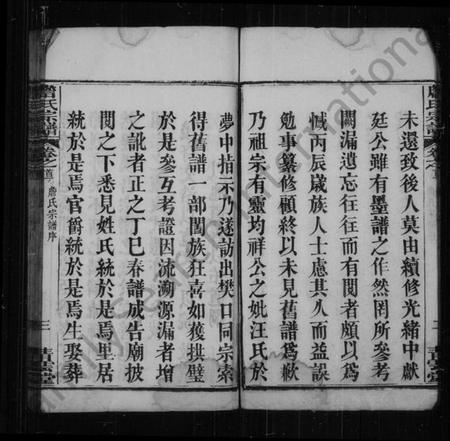 詹氏宗譜
卷之首
二
未還致後人莫由續修光緒中獻
廷公雖有墨譜之作然罔所參考
闕漏遺忘往往而有閱者頗以爲
憾丙辰歲族人士慮其久而益誤
勉事纂修顧終以未見舊譜爲歉
乃祖宗有靈均祥公之妣汪氏於
夢中指示乃遂訪出樊口同宗索
得舊譜一部閤族狂喜如獲拱璧
於是參互考證因流溯源漏者增
之訛者正之丁巳春譜成告廟披
閱之下悉見姓氏統於是焉里居
統於是焉官爵統於是焉生娶葬
詹氏宗譜
卷之首
詹氏宗譜序
三